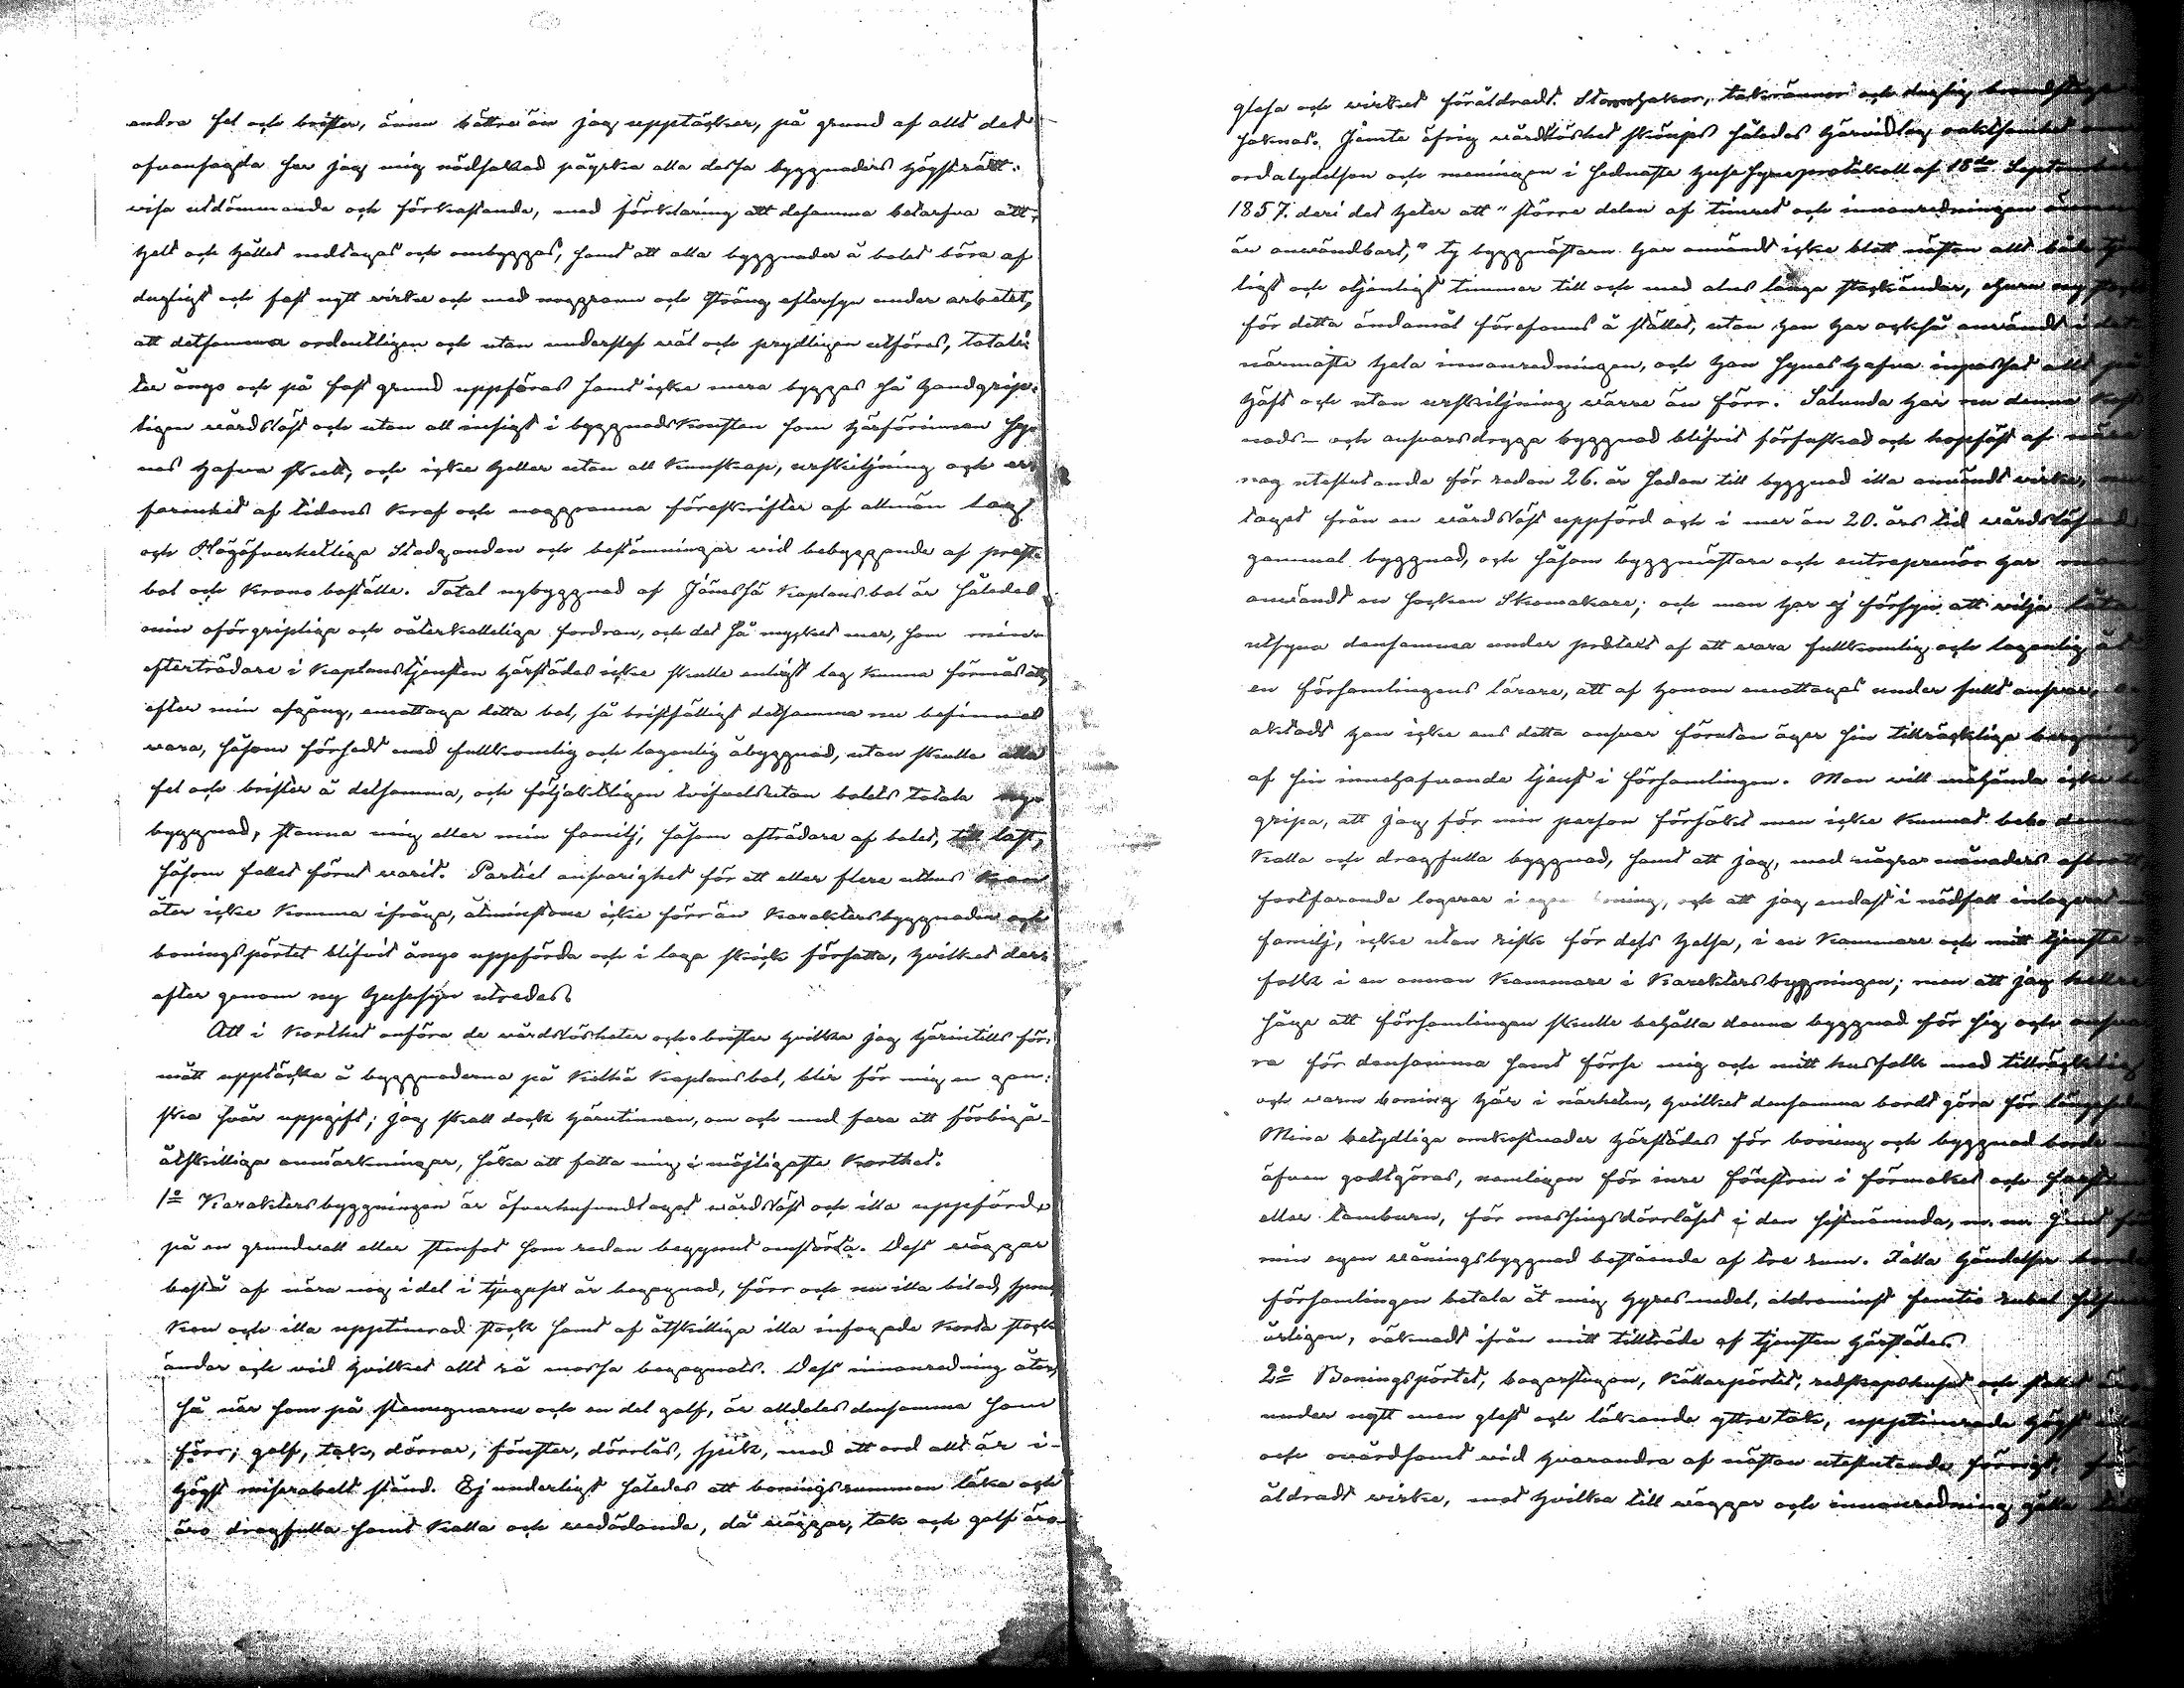 andra fel och brister, ännu bättre än jag upptäcker, på grund af allt det
ofvansagda ser jag mig nödsakad påyrka alla dessa byggnaders högsträtt-
visa utdömmande och förkastande, med förklaring att desamma betarfva allt-
helt och hållet nedtagas och ombyggas, samt att alla byggnader å bolet böra af
dugligt och fast nytt virke och med noggrann och sträng eftersyn under arbetet,
att detsamma ordentligen och utan understef väl och prydligen utföres, totali-
ter ånyo och på fast grund uppföras samt icke mera byggas så handgrip-
ligen vårdslöst och utan all insigt i byggnadskonsten som härförinnan sy-
nes hafva skett, och icke heller utan all kunskap, urskiljning och er-
farenhet af tidens kraf och noggranna föreskrifter af allmän lag
och Högöfverhetliga Stadganden och bestämningar vid bebyggande af preste-
bol och krono boställe. Total nybyggnad af Jämsä kaplansbol är således
min oförgripliga och oåterkalleliga fordran, och det så mycket mer, som mina
efterträdare i kaplanstjensten härstädes icke skulle enligt lag kunna förmås att,
efter min afgång, emottaga detta bol, så bristfälligt detsamma nu befinnes
vara, såsom försedt med fullkomlig och lagenlig åbyggnad, utan skulle alla
fel och brister å detsamma, och följaktligen tvifvelsutan bolets totala ny-
byggnad, stanna mig eller min familj, såsom afträdare af bolet, till last,
såsom fallet förut varit. Partiel ansvarighet för ett eller flere uthus kan
åter icke komma ifråga, åtminstone icke förrän karaktersbyggnaden och
boningspörtet blifvit ånyo uppförda och i laga skick försatta, hvilket der-
efter genom ny husesyn utredes.
Att i korthet anföra de vårdslösheter och brister hvilka jag härintills för-
mått upptäcka å byggnaderna på Kaplansbol, blir för mig en gan-
ska svår uppgift; jag skall dock härutinnan, om och med fara att förbigå
åtskilliga anmärkningar, söka att fatta mig i möjligaste korthet.
1o Karaktersbyggningen är öfverhufvudtaget vårdslöst och illa uppförd,
på en grundvall eller stenfot som redan begynnt omstörta. Dess väggar
bestå af nära nog idel i tjugusex år begagnad, förr och nu illa bilad,
och illa upptimrad stock samt af åtskilliga illa infogade korta stock-
ändar och vid hvilket allt rå mossa begagnats. Dess innanredning åter,
så när som på stenugnarne och en del golf, är alldeles densamma som
förr; golf, tak, dörrar, fönster, dörrlås, spik, med ett ord allt är i
högst miserabelt stånd. Ej underligt således att boningsrummen läka och
äro dragfulla samt kalla och vedödande, då väggar, tak och golf äro
glesa och virket föråldradt. takrännor och duglig
saknas. Jämte öfrig vårdslöshet skönjes således härvidlag
ordalydelsen och meningen i sednaste husesyneprotokoll af 18de September
1857. deri det heter att "större delen af timret och innanredningen ännu
är användbart," ty byggmästaren har användt icke blott nästan allt både tjen-
ligt och otjenligt timmer till och med alns långa stockändar, ehuru ny stock
för detta ändamål förefanns å stället, utan han har också användt i det
närmaste hela innanredningen, och han synes hafva inpassat allt på
häft och utan urskiljning värre än förr. Sålunda har nu denna kost-
nads- och ansvarsdryga byggnad blifvit förfuskad och hopfäst af nära
nog uteslutande för redan 26. år sedan till byggnad illa användt virke,
taget från en vårdslöst uppförd och i mer än 20. års tid vårdslösad
gammal byggnad, och såsom byggmästare och entreprenör har man
användt en socken Skomakare; och man har ej försyn att vilja låta
utsyna densamma under pretext af att vara fullkomlig och lagenlig åt
en församlingens lärare, att af honom emottagas under fullt ansvar,
aktadt han icke ens detta ansvar förutan äger sin tillräckliga bergning
af sin innehafvande tjenst i församlingen. Man vill måhända icke be-
gripa, att jag för min person försökt men icke kunnat bebo denna
kalla och dragfulla byggnad, samt att jag, med några månaders afbrott
fortfarande logerar i egen boning, och att jag endast i nödfall inlogerat min
familj, icke utan risk för dess helsa, i en kammare och mitt tjenste-
folk i en annan kammare i karaktersbyggningen; men att jag hellre
såge att församlingen skulle behålla denna byggnad för sig och ansva-
ra för densamma samt förse mig och mitt husfolk med tillräcklig
och varm boning här i närheten, hvilket densamma bordt göra för länge sedan
Mina betydliga omkostnader härstädes för boning och byggnad borde
äfven godtgöras, nemligen för inre fönstren i förmaket och
eller tamburn, för messingsdörrlåset i den sistnämnda, m. m. samt för
min egen våningsbyggnad bestående af tre rum. I alla händelser borde
församlingen betala åt mig hyresmedel, aldraminst femtio rubel silfver
årligen, räknadt ifrån mitt tillträde af tjensten härstädes.
2o Boningspörtet, bagarstugan, Källarpörtet, redskapshuset och stallet äro
under nytt men glest och läkande yttre tak, upptimrade högst illa
och ovårdsamt vid hvarandra af nästan uteslutande förrigt, för-
åldradt virke, med hvilka till väggar och innanredning gälla